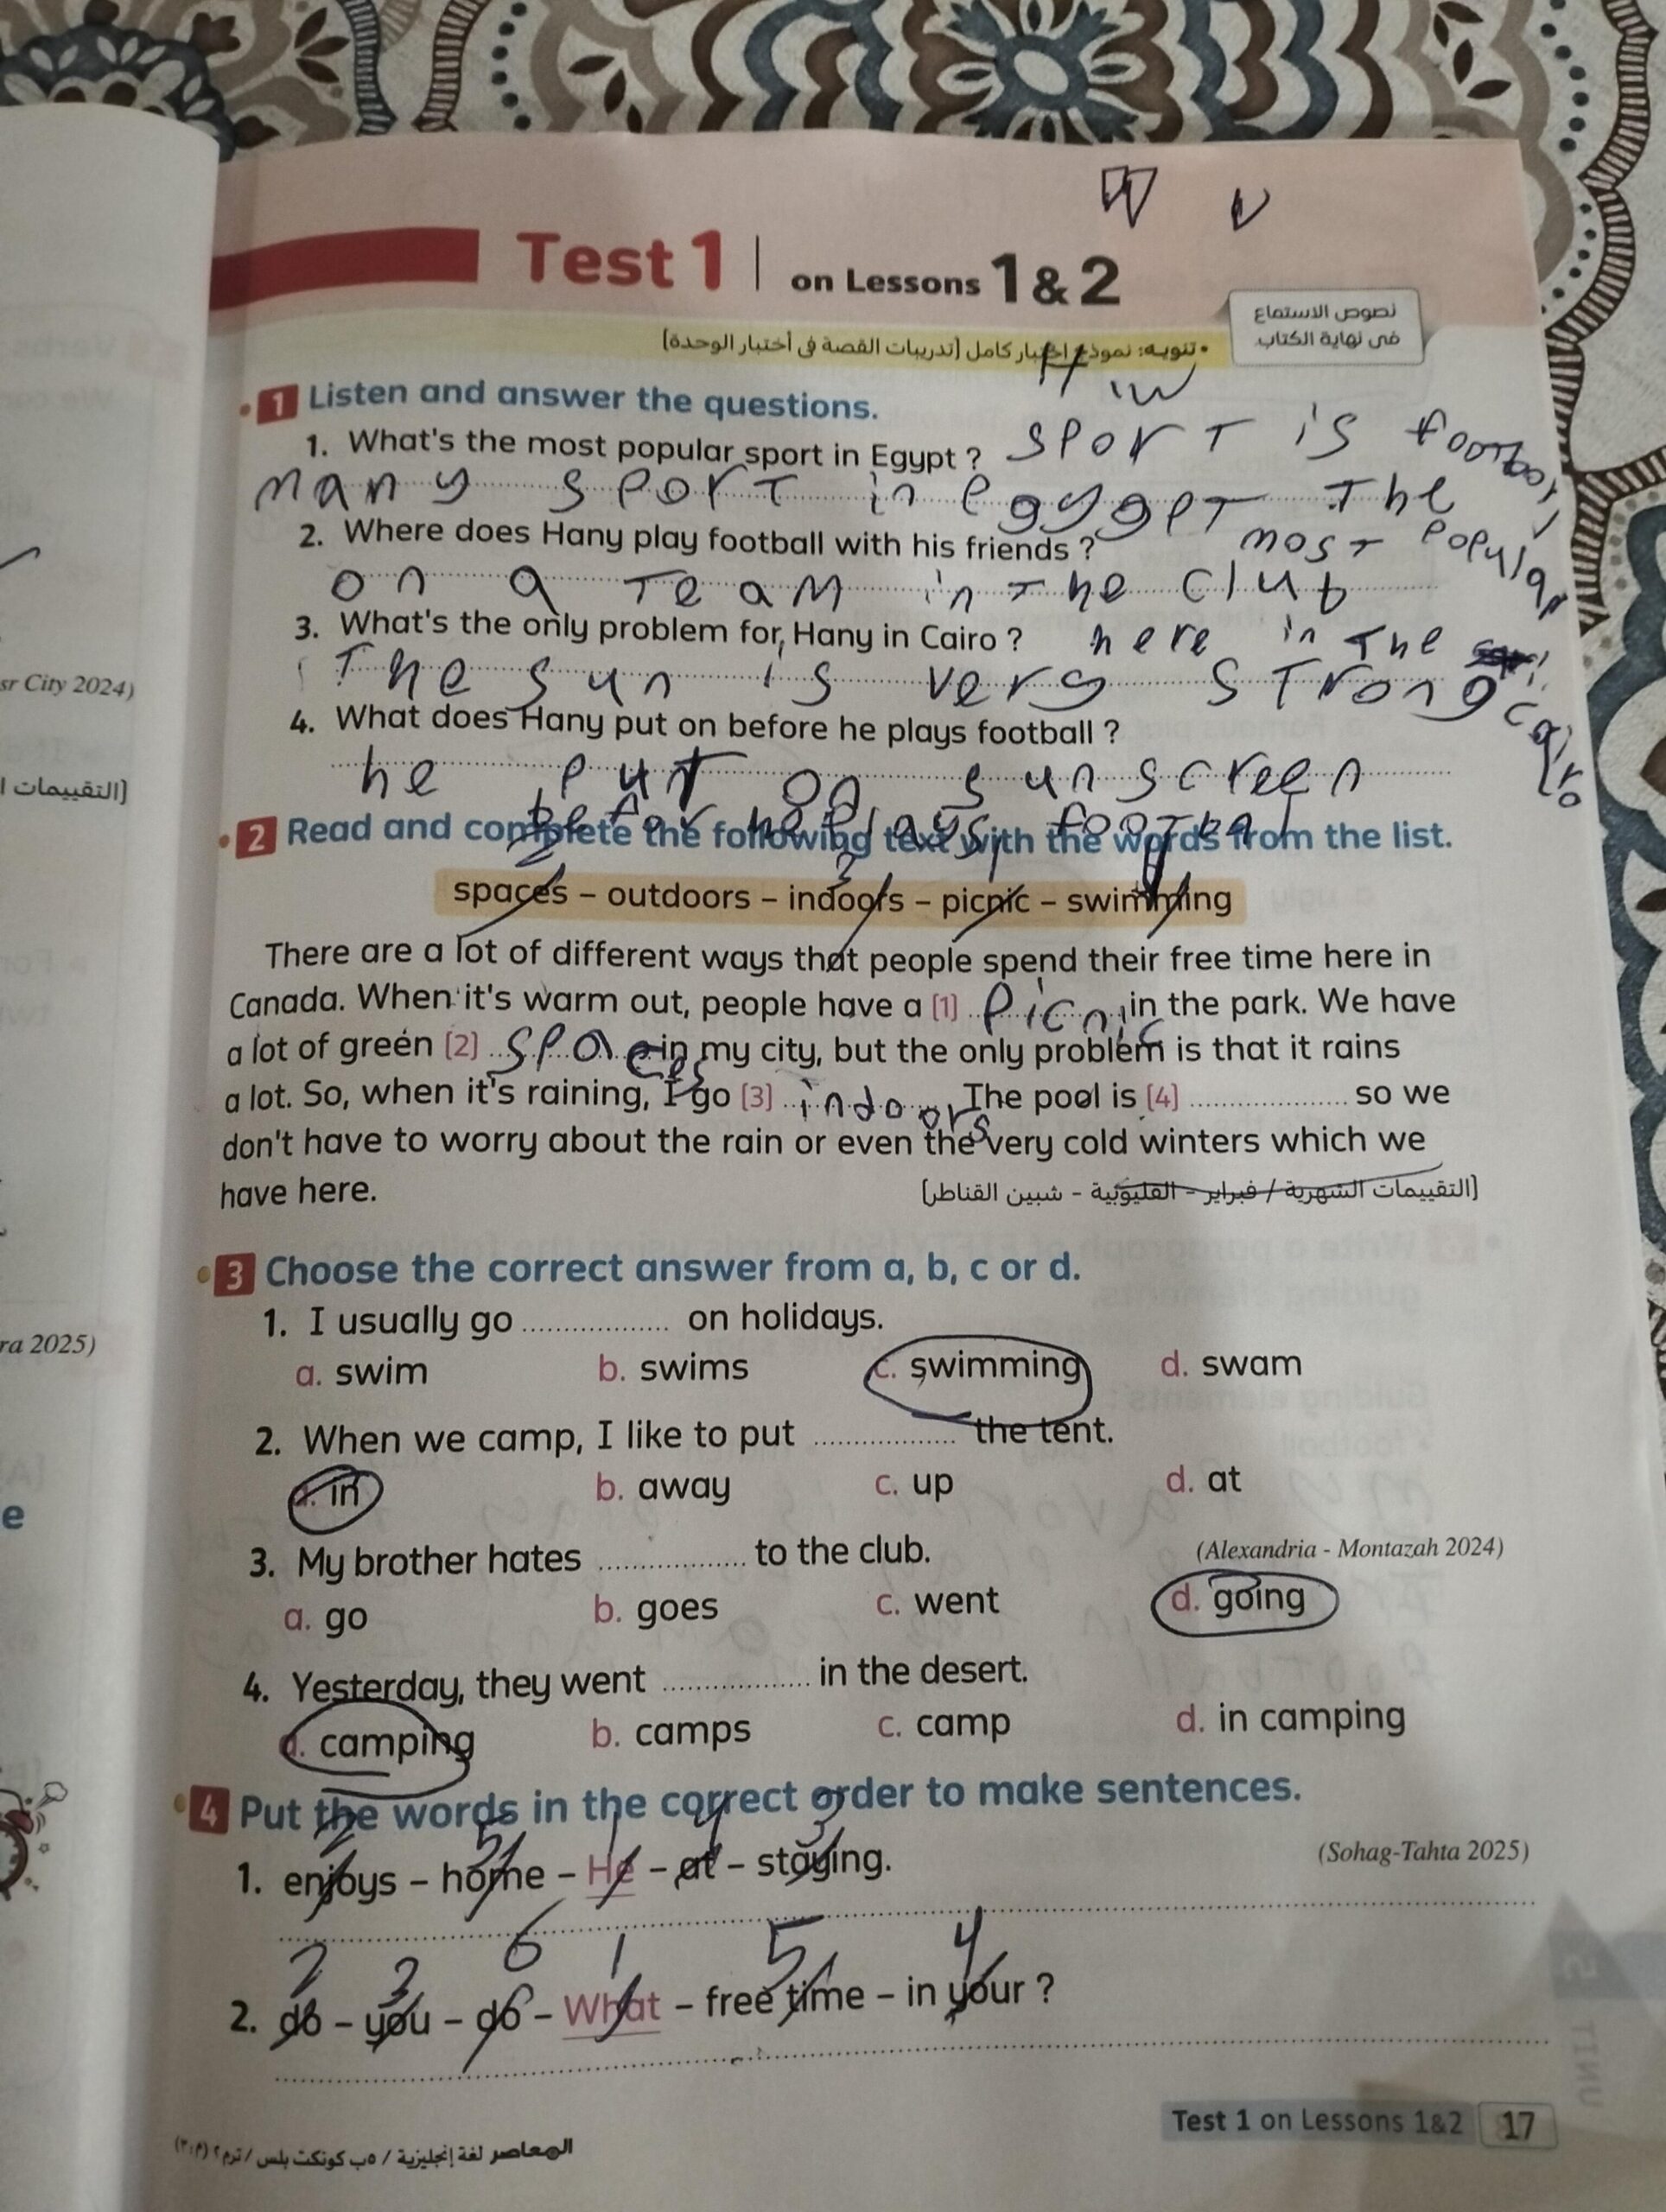 Test 1 | on Lessons 1 & 2
نصوص الاستماع
فى نهاية الكتاب
• تنويه: نموذج اختبار كامل (تدريبات القصة فى أختبار الوحدة)
H w
1 Listen and answer the questions.
1. What's the most popular sport in Egypt ? sport is
many sport in The
2. Where does Hany play football with his friends ? most popular
on a Team in The club
3. What's the only problem for Hany in Cairo ? here in The cairo
The sun is very strong
4. What does Hany put on before he plays football ?
he put on sunscreen
he plays
2 Read and complete the following text with the words from the list.
2 3 1 4
spaces – outdoors – indoors – picnic – swimming
There are a lot of different ways that people spend their free time here in
Canada. When it's warm out, people have a (1) picnic in the park. We have
a lot of green (2) spaces in my city, but the only problem is that it rains
a lot. So, when it's raining, I go (3) indoors The pool is (4) .................. so we
don't have to worry about the rain or even the very cold winters which we
have here.
(التقييمات الشهرية / فبراير - القليوبية - شبين القناطر)
3 Choose the correct answer from a, b, c or d.
1. I usually go .................. on holidays.
a. swim b. swims c. swimming d. swam
2. When we camp, I like to put .................. the tent.
a. in b. away c. up d. at
3. My brother hates .................. to the club. (Alexandria - Montazah 2024)
a. go b. goes c. went d. going
4. Yesterday, they went .................. in the desert.
a. camping b. camps c. camp d. in camping
4 Put the words in the correct order to make sentences.
2 5 1 4 3
1. enjoys – home – He – at – staying. (Sohag-Tahta 2025)
2 3 6 1 5 4
2. do – you – do – What – free time – in your ?
UNIT
Test 1 on Lessons 1&2 17
sr City 2024)
ra 2025)
e